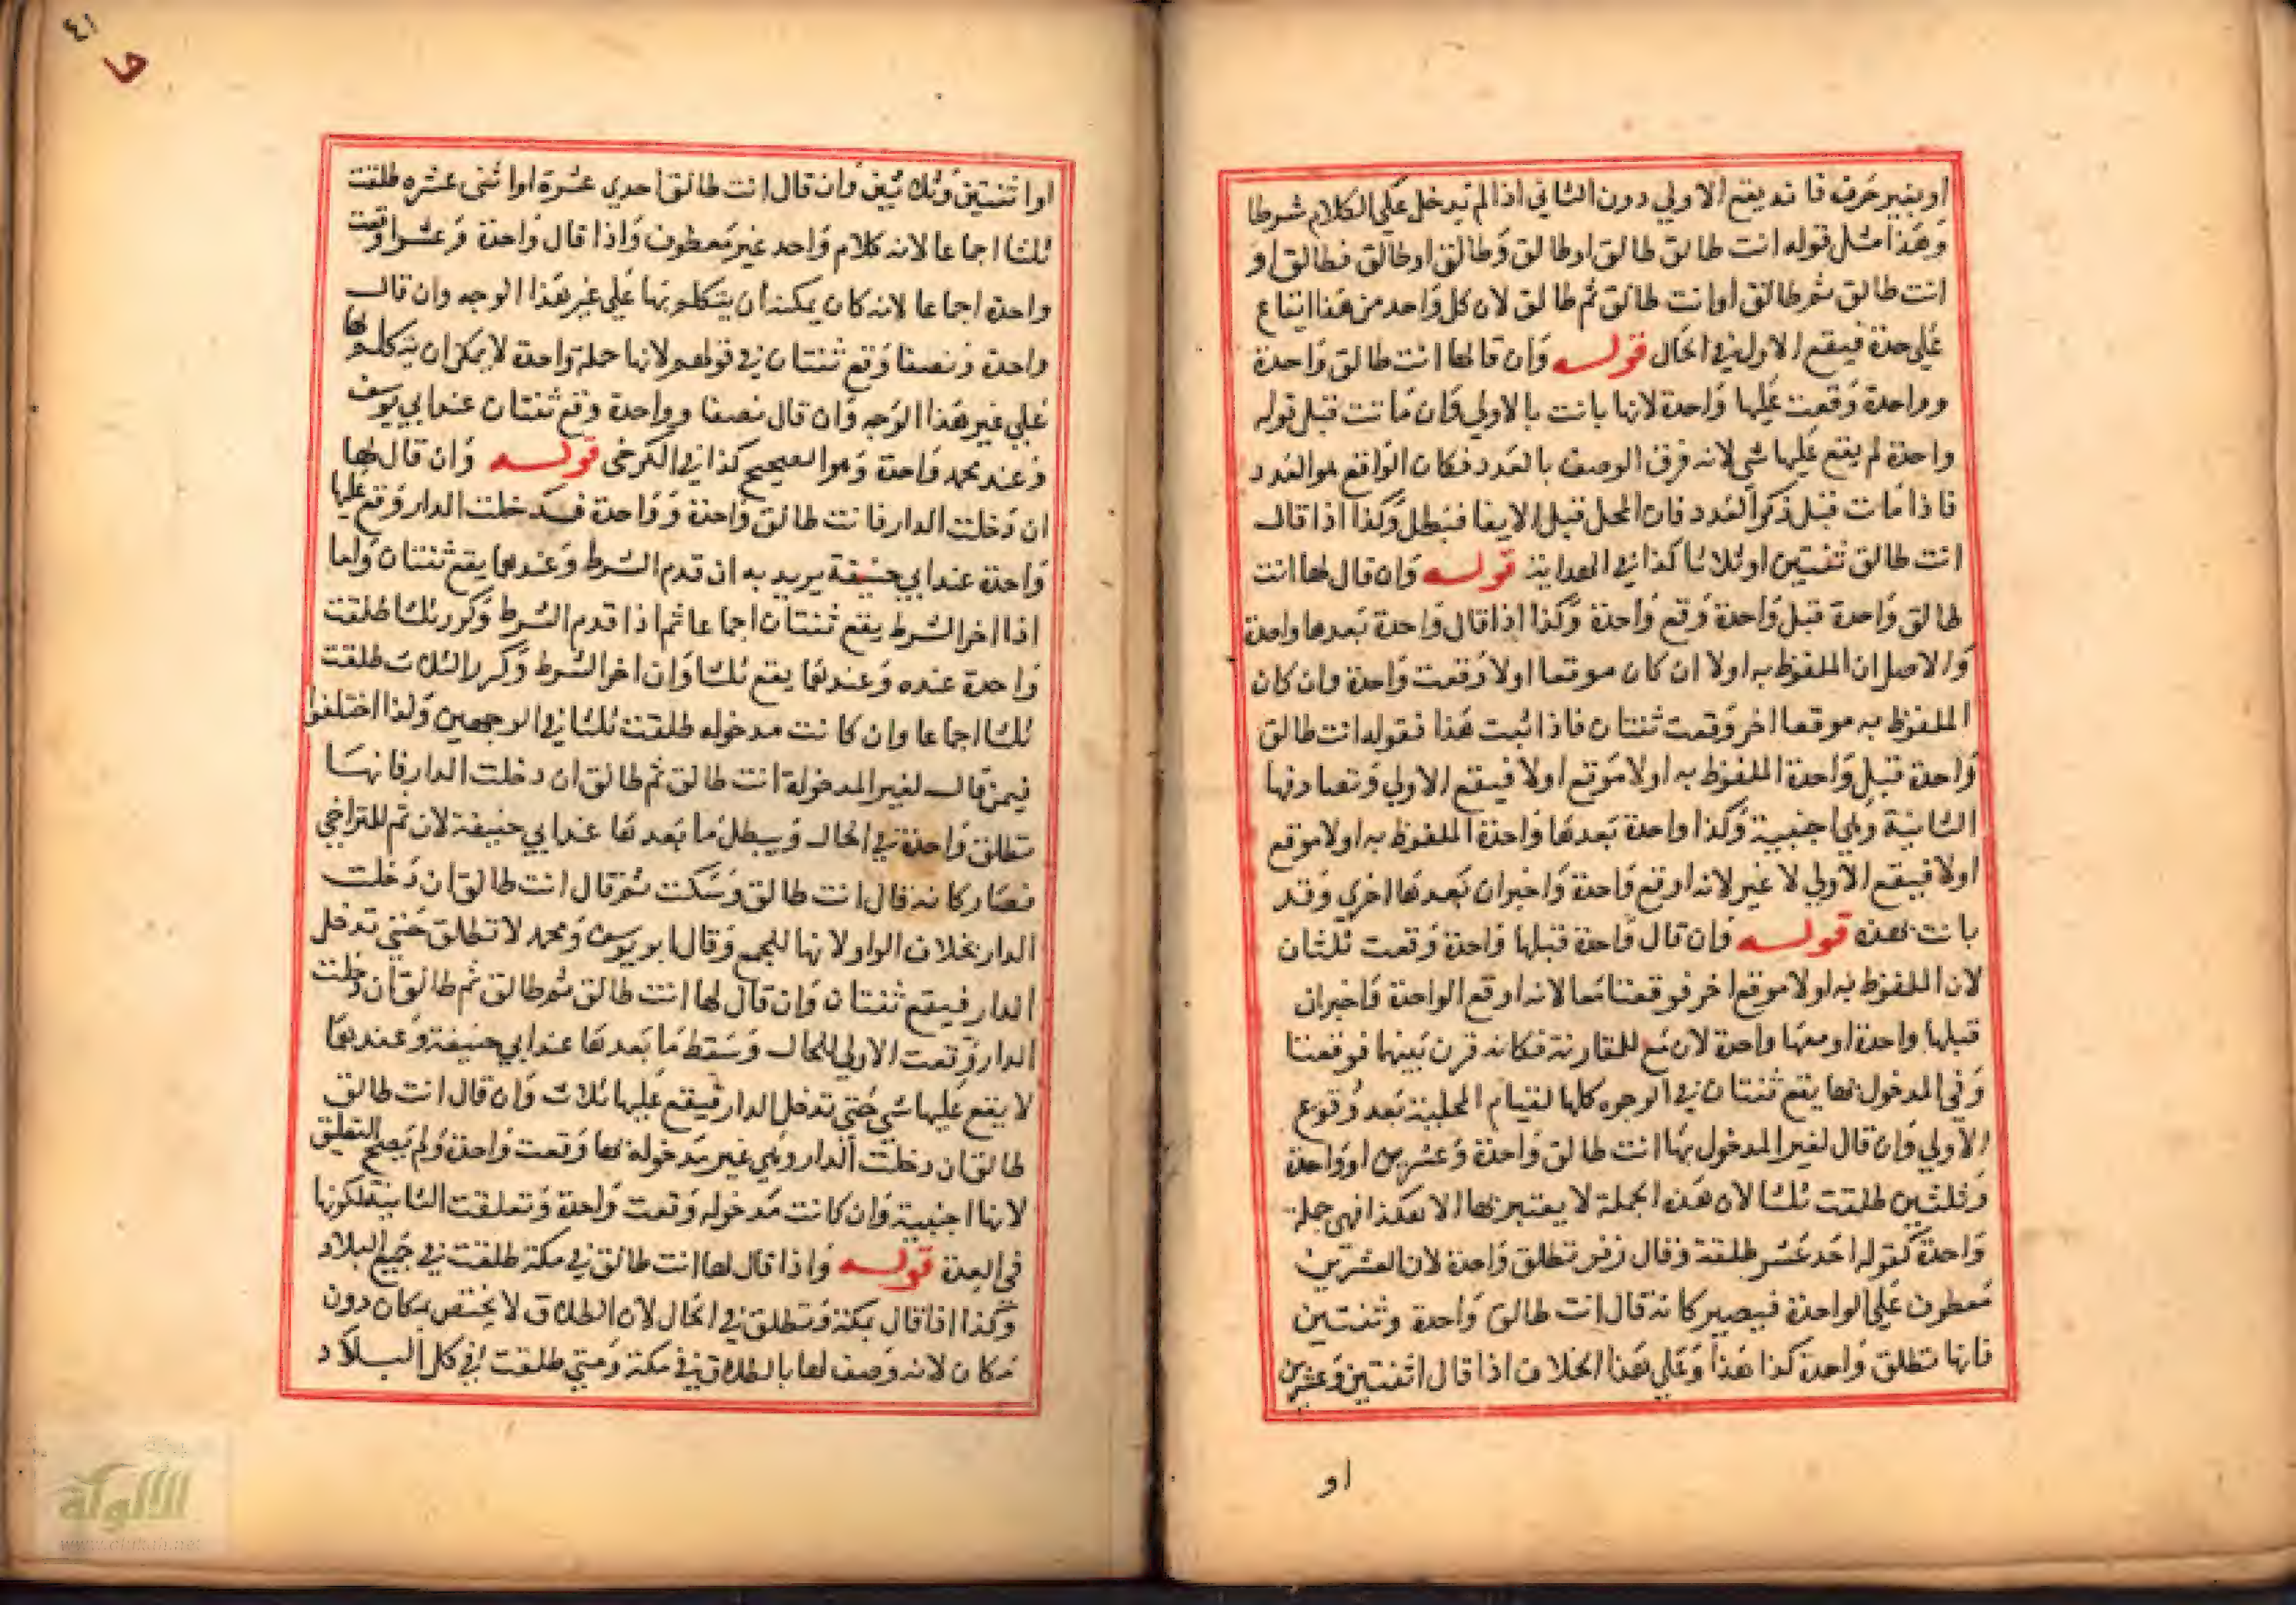 او بغير حرف فانه يقع الاولي دون الثاني اذا لم يدخل علي الكلام شرطا
وهذا مثل قوله انت طالق طالق او طالق وطالق او طالق فطالق او
انت طالق ثم طالق او انت طالق ثم طالق لان كل واحد من هذا ايقاع
علي حدة فيقع الاول في الحال قوله وان قال لها انت طالق واحدة
وواحدة وقعت عليها واحدة لانها بانت بالاولي فان ماتت قبل قوله
واحدة لم يقع عليها شي لانه قرن الوصف بالعدد فكان الواقع هو العدد
فاذا مات قبل ذكر العدد فات المحل قبل الايقا فبطل وكذا اذا قال
انت طالق ثنتين او ثلاثا كذا في الهداية قوله وان قال لها انت
طالق واحدة قبل واحدة وقع واحدة وكذا اذا قال واحدة بعدها واحدة
والاصل ان الملفوظ به اولا ان كان موقعا اولا وقعت واحدة وان كان
الملفوظ به موقعا اخر وقعت ثنتان فاذا ثبت هذا فقوله انت طالق
واحدة قبل واحدة الملفوظ به اولا موقع اولا فيقع الاولي وتصادفها
الثانية وهي اجنبية وكذا واحدة بعدها واحدة الملفوظ به اولا موقع
اولا فيقع الاولي لا غير لانه اوقع واحدة واخبر ان بعدها اخري وقد
بانت بهذه قوله وان قال واحدة قبلها واحدة وقعت ثلثان
لان الملفوظ به اولا موقع اخر فوقعتا معا لانه اوقع الواحدة واخبر ان
قبلها واحدة او معها واحدة لان مع للمقارنة فكانه قرن بينهما فوقعتا
وفي المدخول بها يقع ثنتان في الوجوه كلها لقيام المحلية بعد وقوع
الاولي وان قال لغير المدخول بها انت طالق واحدة وعشرين او واحدة
وثلثين طلقت ثلثا لان هذه الجملة لا يعتبر بها الا هكذا فهي جملة
واحدة كقوله احد عشر طلقة وقال زفر تطلق واحدة لان العشرين
معطوف علي الواحدة فيصير كانه قال انت طالق واحدة وثنتين
فانها تطلق واحدة كذا هذا وعلي هذا الخلاف اذا قال اثنتين وعشرين
او
٤١
او اثنتين وثلثين وان قال انت طالق احدي عشرة او اثني عشره طلقت
ثلثا اجماعا لانه كلام واحد غير معطوف واذا قال واحدة وعشرا وقعت
واحدة اجماعا لانه كان يمكنه ان يتكلم بها علي غير هذا الوجه وان قال
واحدة ونصفا وقع ثنتان في قولهم لانها جملة واحدة لا يمكن ان يتكلم بها
علي غير هذا الوجه وان قال نصفا وواحدة وقع ثنتان عند ابي يوسف
وعند محمد واحدة وهو الصحيح كذا في الكرخي قوله وان قال لها
ان دخلت الدار فانت طالق واحدة وواحدة فدخلت الدار وقع عليها
واحدة عند ابي حنيفة يريد به ان قدم الشرط وعندهما يقع ثنتان واما
اذا اخر الشرط يقع ثنتان اجماعا ثم اذا قدم الشرط وكرر ثلثا طلقت
واحدة عنده وعندهما يقع ثلثا وان اخر الشرط وكرر الثلاث طلقت
ثلثا اجماعا وان كانت مدخوله طلقت ثلثا في الوجهين ولذا اختلفوا
فيمن قال لغير المدخولة انت طالق ثم طالق ان دخلت الدار فانها
تطلق واحدة في الحال ويبطل ما بعدها عند ابي حنيفة لان ثم للتراخي
فصار كانه قال انت طالق وسكت ثم قال انت طالق ان دخلت
الدار بخلاف الواو لانها للجمع وقال ابو يوسف ومحمد لا تطلق حتي تدخل
الدار فيقع ثنتان وان قال لها انت طالق ثم طالق ثم طالق ان دخلت
الدار وقعت الاولي للحال وسقط ما بعدها عند ابي حنيفة وعندهما
لا يقع عليها شي حتي تدخل الدار فيقع عليها ثلاث وان قال انت طالق
طالق ان دخلت الدار وهي غير مدخولة بها وقعت واحدة ولم يصح التعليق
لانها اجنبية وان كانت مدخوله وقعت واحدة وتعلقت الثانية لكونها
في العدة قوله واذا قال لها انت طالق في مكة طلقت في جميع البلاد
وكذا اذا قال بمكة وتطلق في الحال لان الطلاق لا يختص بمكان دون
مكان لانه وصف لها بالطلاق في مكة ومتي طلقت في كل البلاد
الألوكة
www.alukah.net